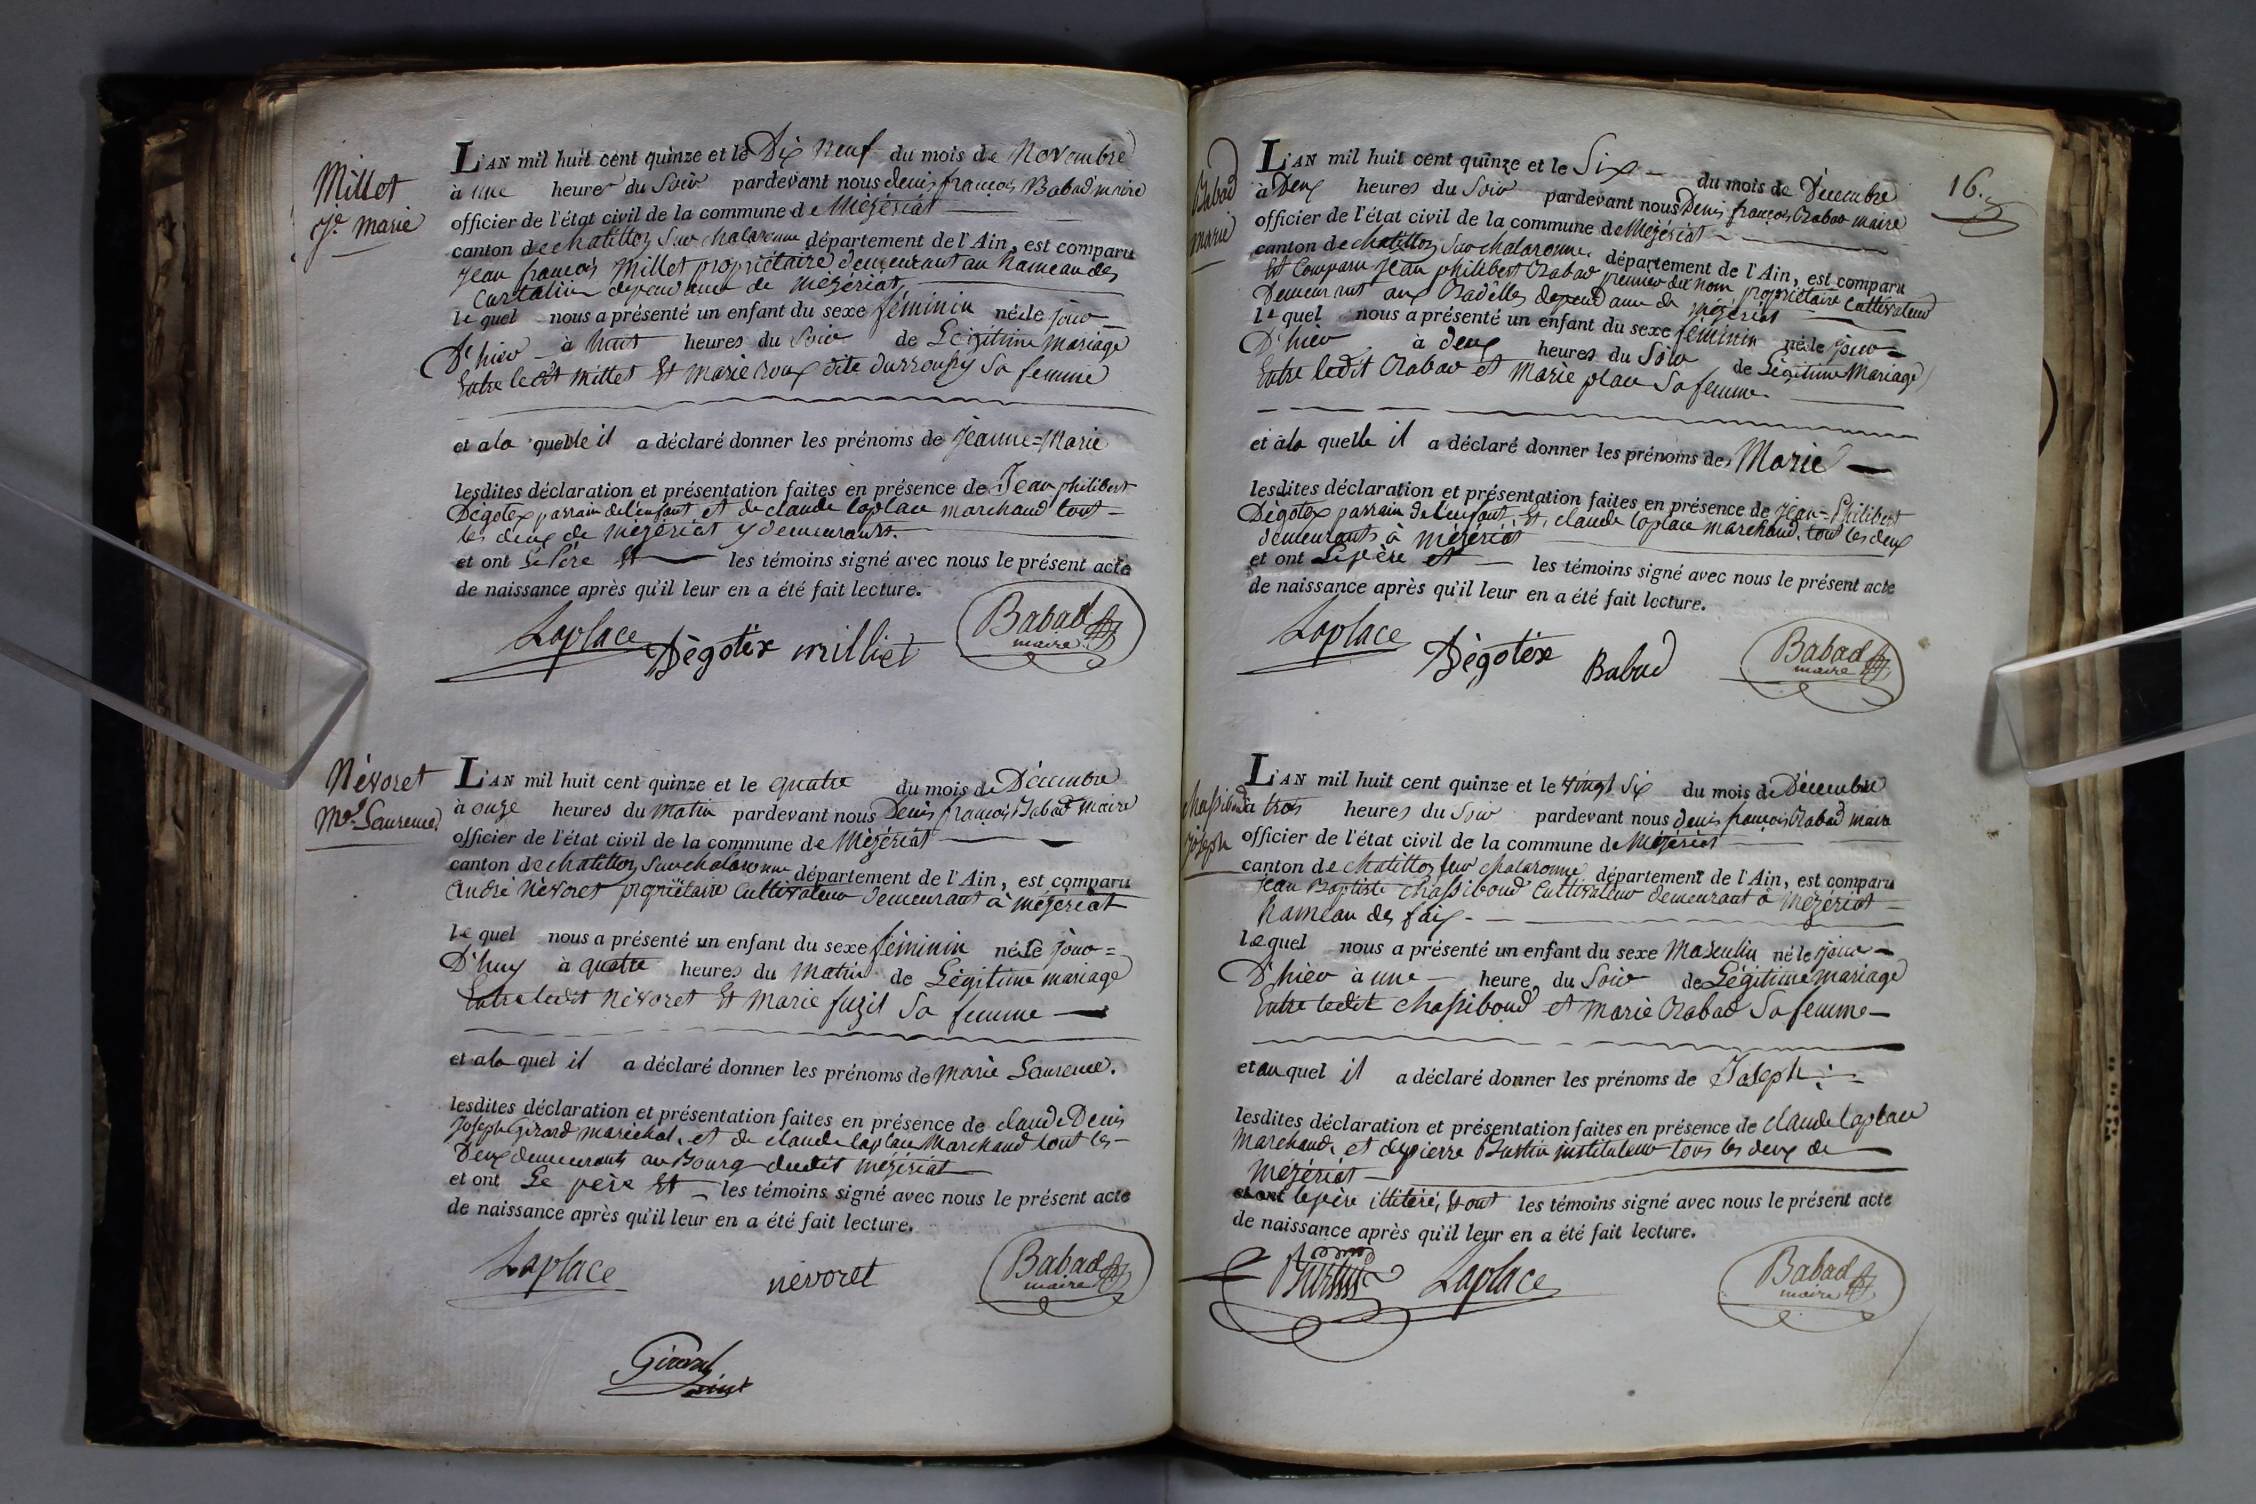 Millet
Je. marie
L'AN mil huit cent quinze et le Dix neuf du mois de Novembre
à une heure du Soir pardevant nous denis françois Babad maire
officier de l'état civil de la commune de Mézériat
canton de chatillon Sur chalaronne département de l'Ain, est comparu
Jean françois Millet propriétaire demeurant au hameau des
dépendance de Mézériat
le quel nous a présenté un enfant du sexe féminin né le jour
D'hier à huit heures du Soir de Légitime Mariage
Entre ledit Millet Et Marie roux dite durroussy Sa femme
et a la quelle il a déclaré donner les prénoms de Jeanne=Marie
lesdites déclaration et présentation faites en présence de Jean philibert
Dégotex parrain de l'enfant et de claude laplace marchand tout=
les deux de Mézériat y demeurants.
et ont Le Père Et les témoins signé avec nous le présent acte
de naissance après qu'il leur en a été fait lecture.
Laplace Dègotex milliet Babad
maire
Névoret
Me. Laurence
L'AN mil huit cent quinze et le quatre du mois de Décembre
à onze heures du matin pardevant nous Denis françois Babad Maire
officier de l'état civil de la commune de Mézériat
canton de chatillon Sur chalaronne département de l'Ain, est comparu
andré Névoret propriétaire Cultivateur demeurant à mézériat
le quel nous a présenté un enfant du sexe féminin né le jour=
D'huy à quatre heures du Matin de Légitime mariage
Entre ledit Névoret Et Marie fuzil Sa femme
et a la quel il a déclaré donner les prénoms de Marie Laurence.
lesdites déclaration et présentation faites en présence de claude Denis
Joseph Girard maréchal, et de claude laplace Marchand tout les
Deux demeurants au Bourg dudit Mézériat
et ont Le père Et les témoins signé avec nous le présent acte
de naissance après qu'il leur en a été fait lecture.
Laplace nevoret Babad
maire
Girard
16.
Babad
marie
L'AN mil huit cent quinze et le Six du mois de Décembre
à Deux heures du Soir pardevant nous Denis françois Babad maire
officier de l'état civil de la commune de Mézériat
canton de chatillon Sur chalaronne département de l'Ain, est comparu
Est Comparu Jean philibert Babad premier du nom propriétaire Cultivateur
Demeurant aux dépendance de mézériat
le quel nous a présenté un enfant du sexe féminin né le jour=
D'hier à deux heures du Soir de Légitime Mariage
Entre ledit Babad et Marie place Sa femme
et a la quelle il a déclaré donner les prénoms de Marie
lesdites déclaration et présentation faites en présence de Jean-Philibert
Dégotex parrain de l'enfant, Et, claude laplace Marchand, tout les deux
demeurants à mézériat
et ont Le père et les témoins signé avec nous le présent acte
de naissance après qu'il leur en a été fait lecture.
Laplace Dègotex Babad Babad
maire
chassiboud
joseph
L'AN mil huit cent quinze et le vingt Six du mois de Décembre
à trois heures du Soir pardevant nous denis françois Babad maire
officier de l'état civil de la commune de Mézériat
canton de chatillon sur chalaronne département de l'Ain, est comparu
Jean Baptiste chassiboud Cultivateur demeurant à Mézériat
hameau des faix
le quel nous a présenté un enfant du sexe Masculin né le jour
D'hier à une heure du Soir de Légitime mariage
Entre ledit chassiboud et Marie Babad Sa femme
et au quel il a déclaré donner les prénoms de Joseph
lesdites déclaration et présentation faites en présence de claude laplace
Marchand, et de pierre Burtin instituteur tous les deux de
Mézériat
et ont le père illitéré, Et ont les témoins signé avec nous le présent acte
de naissance après qu'il leur en a été fait lecture.
Burtin Laplace Babad
maire